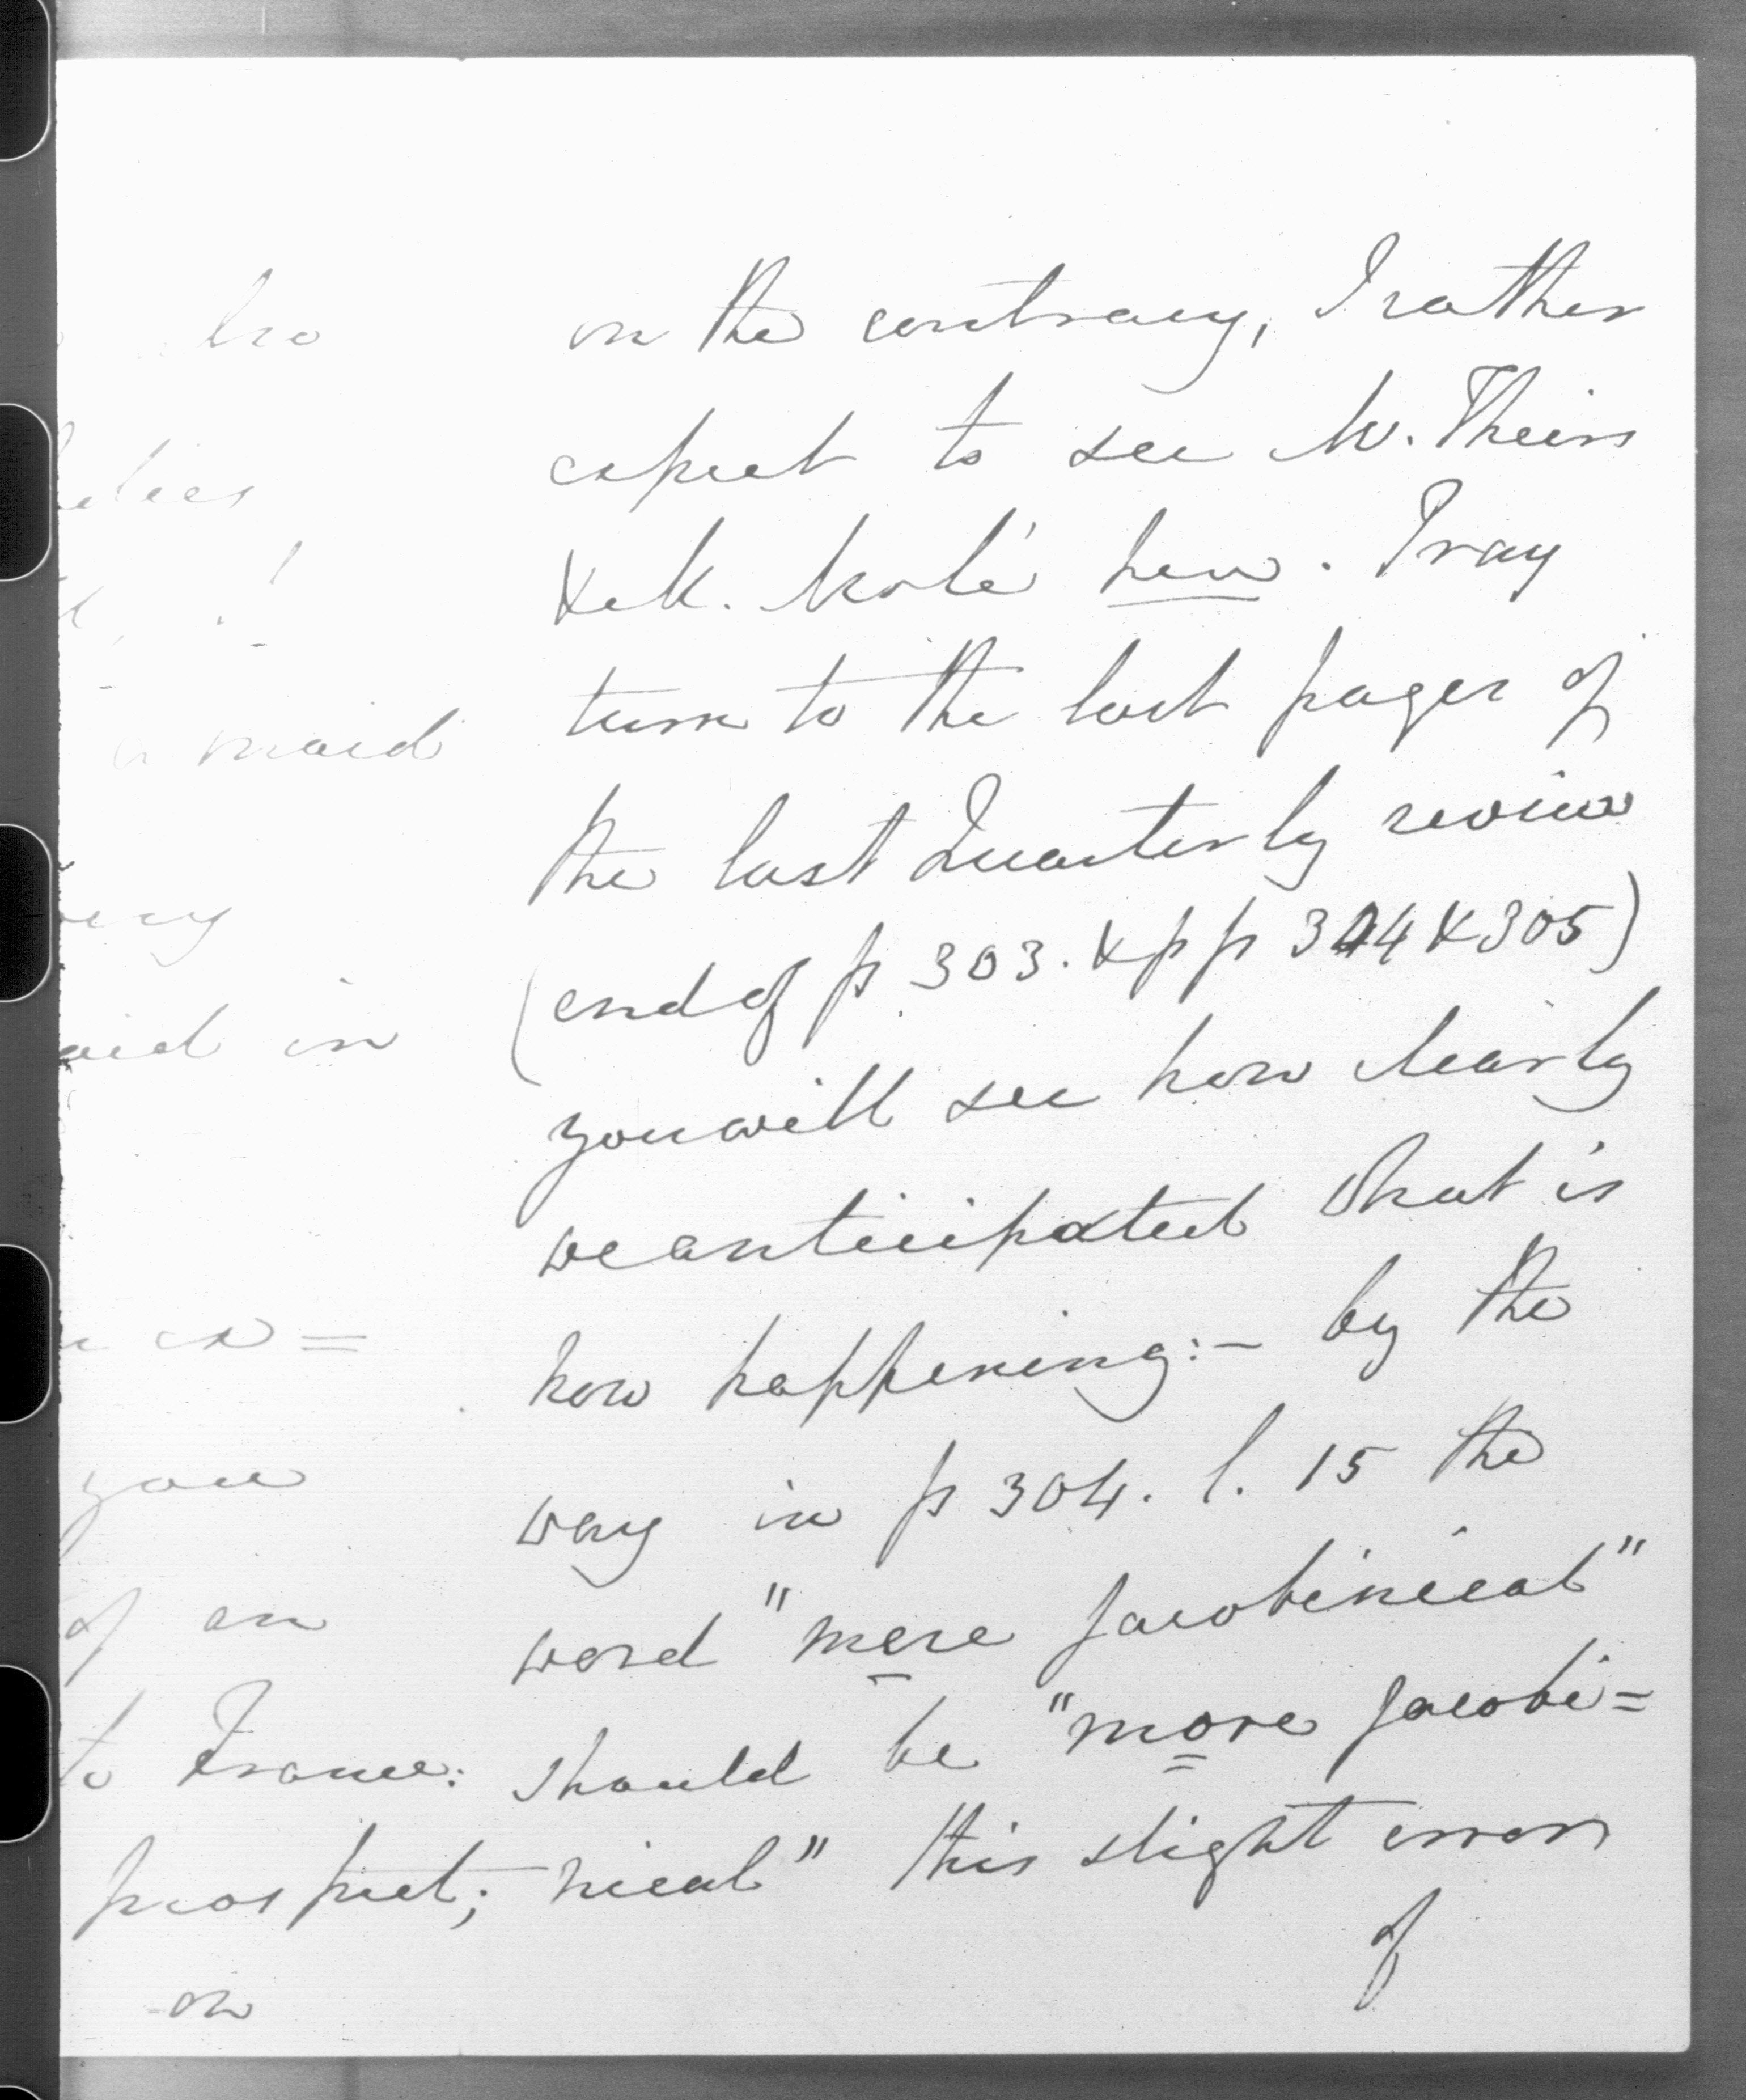 on the contrary, I rather
expect to see M. Theirs
& M. Molé here. Pray
turn to the last pages of
the last Quarterly review
(end of p 303. & pp 304 & 305)
you will see how clearly
we anticipated what is
now happening:— by the
way in p 304. l. 15 the
word "mere Jacobinical"
should be "more Jacobi=
nical" this slight error
of
a maid
aid in
you
of an
to France:
prospect;
on